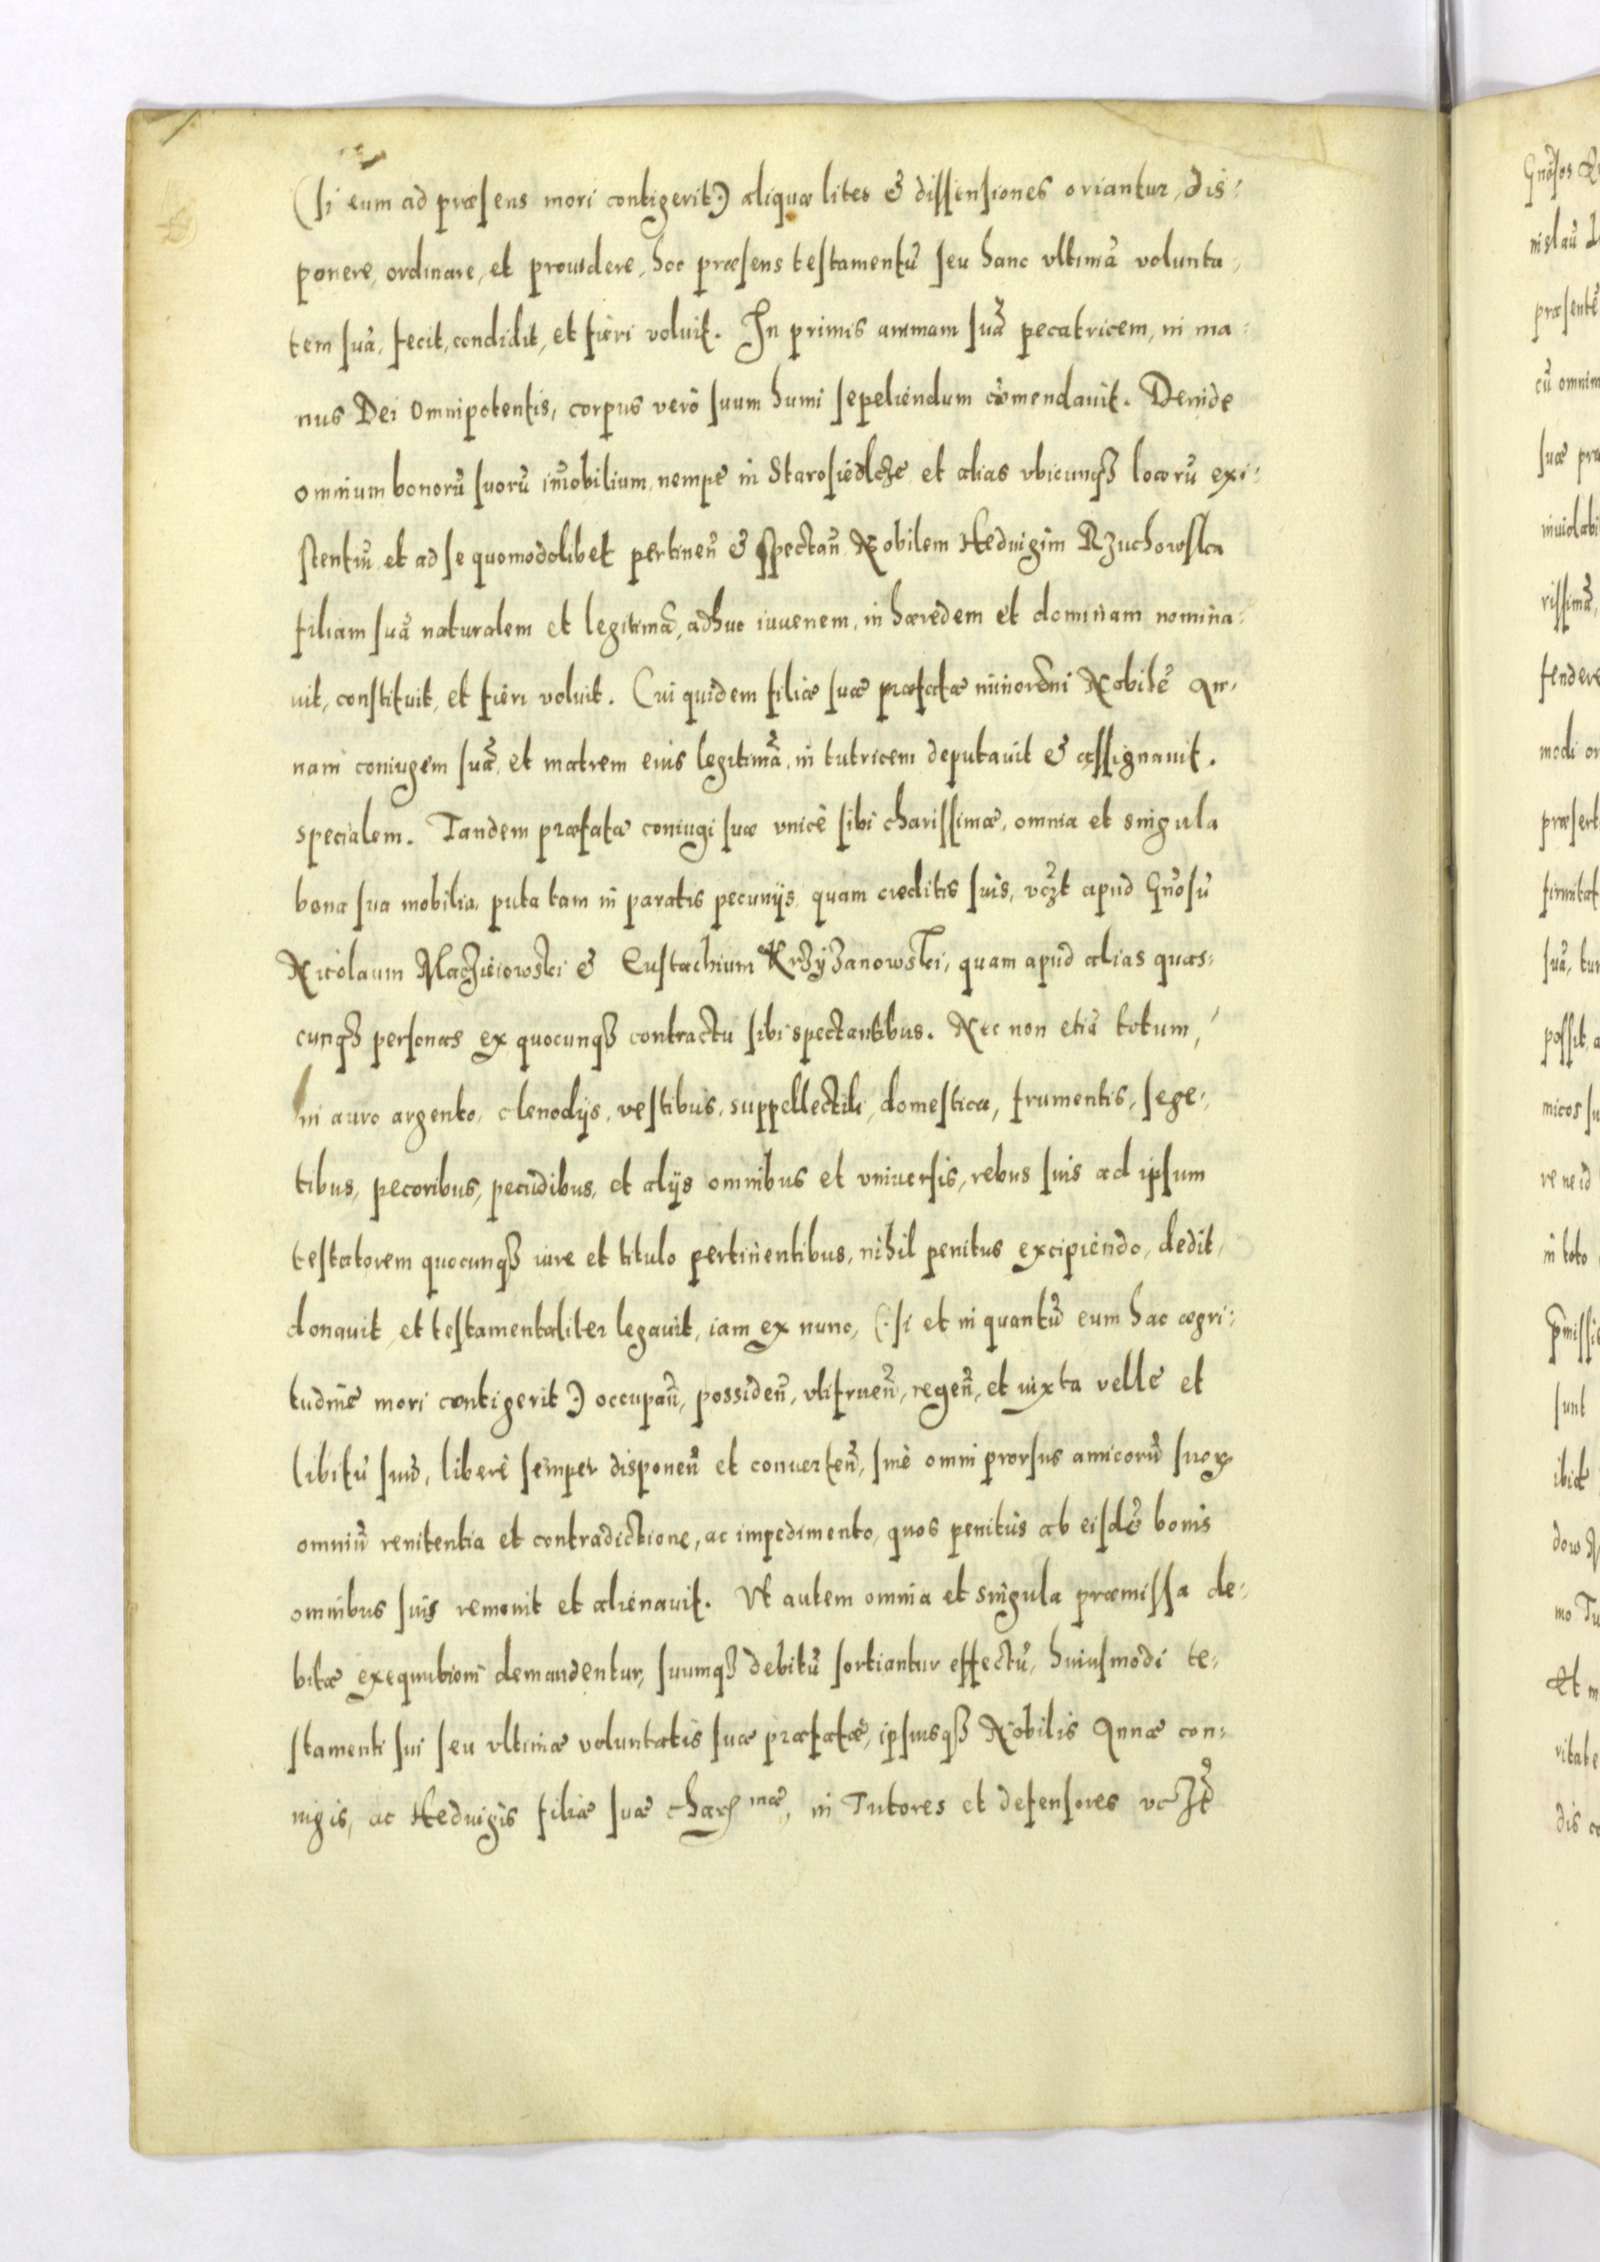 (si eum ad præsens mori contigerit) aliquæ lites & dissensiones oriantur, dis-
ponere, ordinare, et prouidere, hoc præsens testamentũ seu hanc vltimã volunta-
tem suã, fecit, condidit, et fieri voluit. In primis animam suã pecatricem, in ma-
nus Dei Omnipotentis, corpus verò suum humi sepeliendum cõmendauit. Deinde
omnium bonorũ suorũ im̃obilium, nempè in Starosiedlcze et alias vbicunqꝫ locorũ exi-
stentiũ et ad se quomodolibet pertineñ & spectañ Nobilem Heduigim Rzuchowska
filiam suã naturalem et legitimã, adhuc iuuenem, in hæredem et dominam nomina-
uit, constituit, et fieri voluit. Cui quidem filiæ suæ præfatæ minorenni Nobilẽ An-
nam coniugem suã, et matrem eius legitimã, in tutricem deputauit & assignauit.
specialem. Tandem præfatæ coniugi suæ vnicè sibi charissimæ, omnia et singula
bona sua mobilia, puta tam in paratis pecunijs quam creditis suis, vcꝫt apud Gñosũ
Nicolaum Macziiowski & Eustachium Krzyzanowski, quam apud alias quas-
cunqꝫ personas ex quocunqꝫ contractu sibi spectantibus. Nec non etiã totum,
in auro argento, clenodijs, vestibus, suppellectili, domestica, frumentis, sege-
tibus, pecoribus, pecudibus, et alijs omnibus et vniuersis, rebus suis ad ipsum
testatorem quocunqꝫ iure et titulo pertinentibus, nihil penitus excipiendo, dedit,
donauit, et testamentaliter legauit, iam ex nunc, (si et in quantũ eum hac ægri-
tudine mori contigerit) occupañ, possideñ, vtifrueñ, regeñ, et iuxta velle et
libitũ suũ, liberè semper disponeñ et conuerteñ, sinè omni prorsus amicorũ suoꝝ
omniũ renitentia et contradictione, ac impedimento, quos penitùs ab eisdẽ bonis
omnibus suis remouit et alienauit. Vt autem omnia et singula præmissa de-
bitæ exequutioni demandentur, suumqꝫ debitũ sortiantur effectũ, huiusmodi te-
stamenti sui seu vltimæ voluntatis suæ præfatæ, ipsiusqꝫ Nobilis Annæ con-
iugis, ac Heduigis filiæ suæ char^mæ, in Tutores et defensores vcꝫt